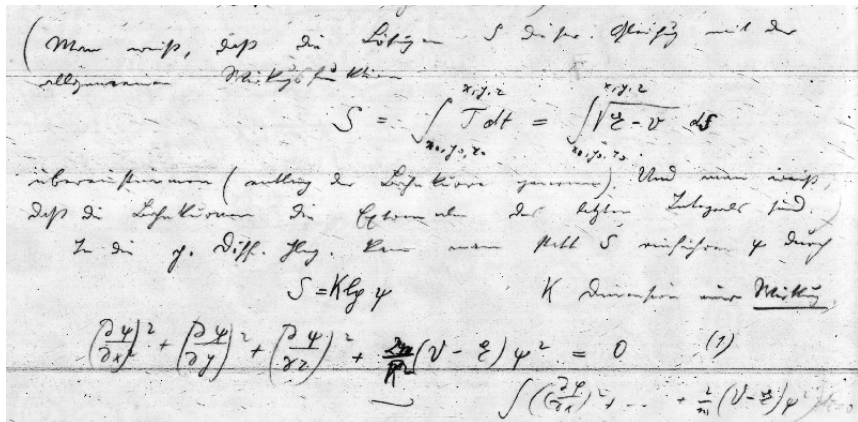 (Man weiß, daß die Lösungen S dieser Gleichung mit der
allgemeinen Wirkungsfunktion
x,y,z x,y,z
S = ∫ T dt = ∫ √(E - V) ds
x₀,y₀,z₀ x₀,y₀,z₀
übereinstimmen (entlang der Bahnkurve genommen). Und man weiß,
daß die Bahnkurven die Extremalen des letzten Integrals sind.)
In die p. Diff. Glchg. kann man statt S einführen ψ durch
S = K lg ψ K Dimension einer Wirkung
(∂ψ/∂x)² + (∂ψ/∂y)² + (∂ψ/∂z)² + 2m/K² (V - E) ψ² = 0 (1)
∫ ((∂ψ/∂x)² + ... + (V - E) ψ²)